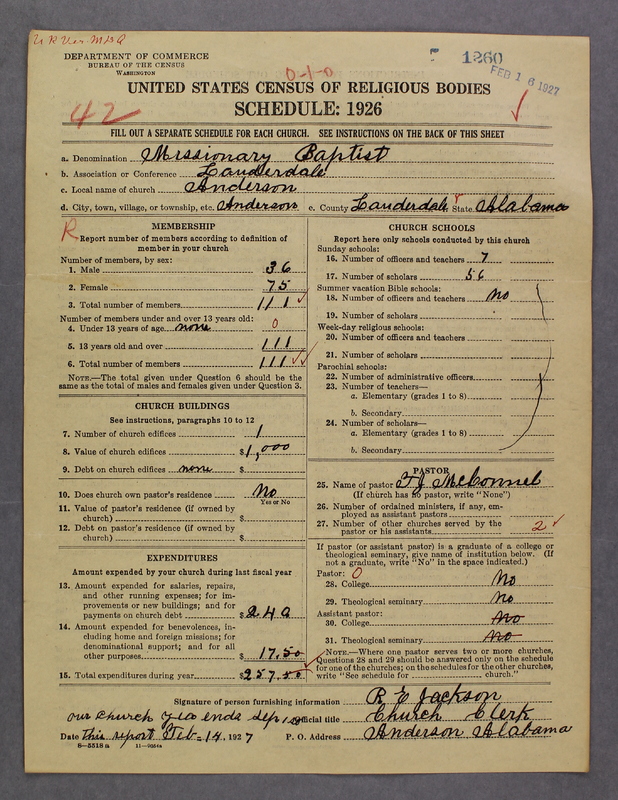 DEPARTMENT OF COMMERCE
BUREAU OF THE CENSUS
WASHINGTON
1260
FEB 16 1927
0-1-0
42
UNITED STATES CENSUS OF RELIGIOUS BODIES
SCHEDULE: 1926
FILL OUT A SEPARATE SCHEDULE FOR EACH CHURCH. SEE INSTRUCTIONS ON THE BACK OF THIS SHEET
a. Denomination Missionary Baptist
b. Association or Conference Lauderdale
c. Local name of church Anderson
d. City, town, village, or township, etc. Anderson e. County Lauderdale State Alabama
R
MEMBERSHIP
Report number of members according to definition of
member in your church
Number of members, by sex:
1. Male 36
2. Female 75
3. Total number of members 111
Number of members under and over 13 years old:
4. Under 13 years of age none 0
5. 13 years old and over 111
6. Total number of members 111
NOTE.—The total given under Question 6 should be the
same as the total of males and females given under Question 3.
CHURCH BUILDINGS
See instructions, paragraphs 10 to 12
7. Number of church edifices 1
8. Value of church edifices $1,000
9. Debt on church edifices none $
10. Does church own pastor's residence No
Yes or No
11. Value of pastor's residence (if owned by
church) $
12. Debt on pastor's residence (if owned by
church) $
EXPENDITURES
Amount expended by your church during last fiscal year
13. Amount expended for salaries, repairs,
and other running expenses; for im-
provements or new buildings; and for
payments on church debt $240
14. Amount expended for benevolences, in-
cluding home and foreign missions; for
denominational support; and for all
other purposes $ 17.50
15. Total expenditures during year $257.50
CHURCH SCHOOLS
Report here only schools conducted by this church
Sunday schools:
16. Number of officers and teachers 7
17. Number of scholars 56
Summer vacation Bible schools:
18. Number of officers and teachers no
19. Number of scholars
Week-day religious schools:
20. Number of officers and teachers
21. Number of scholars
Parochial schools:
22. Number of administrative officers
23. Number of teachers—
a. Elementary (grades 1 to 8)
b. Secondary
24. Number of scholars—
a. Elementary (grades 1 to 8)
b. Secondary
PASTOR
25. Name of pastor McConnel
(If church has no pastor, write "None")
26. Number of ordained ministers, if any, em-
ployed as assistant pastors
27. Number of other churches served by the
pastor or his assistants 2
If pastor (or assistant pastor) is a graduate of a college or
theological seminary, give name of institution below. (If
not a graduate, write "No" in the space indicated.)
Pastor: 0
28. College No
29. Theological seminary No
Assistant pastor:
30. College No
31. Theological seminary No
NOTE.—Where one pastor serves two or more churches,
Questions 28 and 29 should be answered only on the schedule
for one of the churches; on the schedules for the other churches,
write "See schedule for church."
Signature of person furnishing information R E Jackson
our church year ends Sep 1 Official title Church Clerk
Date this report Feb-14, 1927 P. O. Address Anderson Alabama
8—5518 a